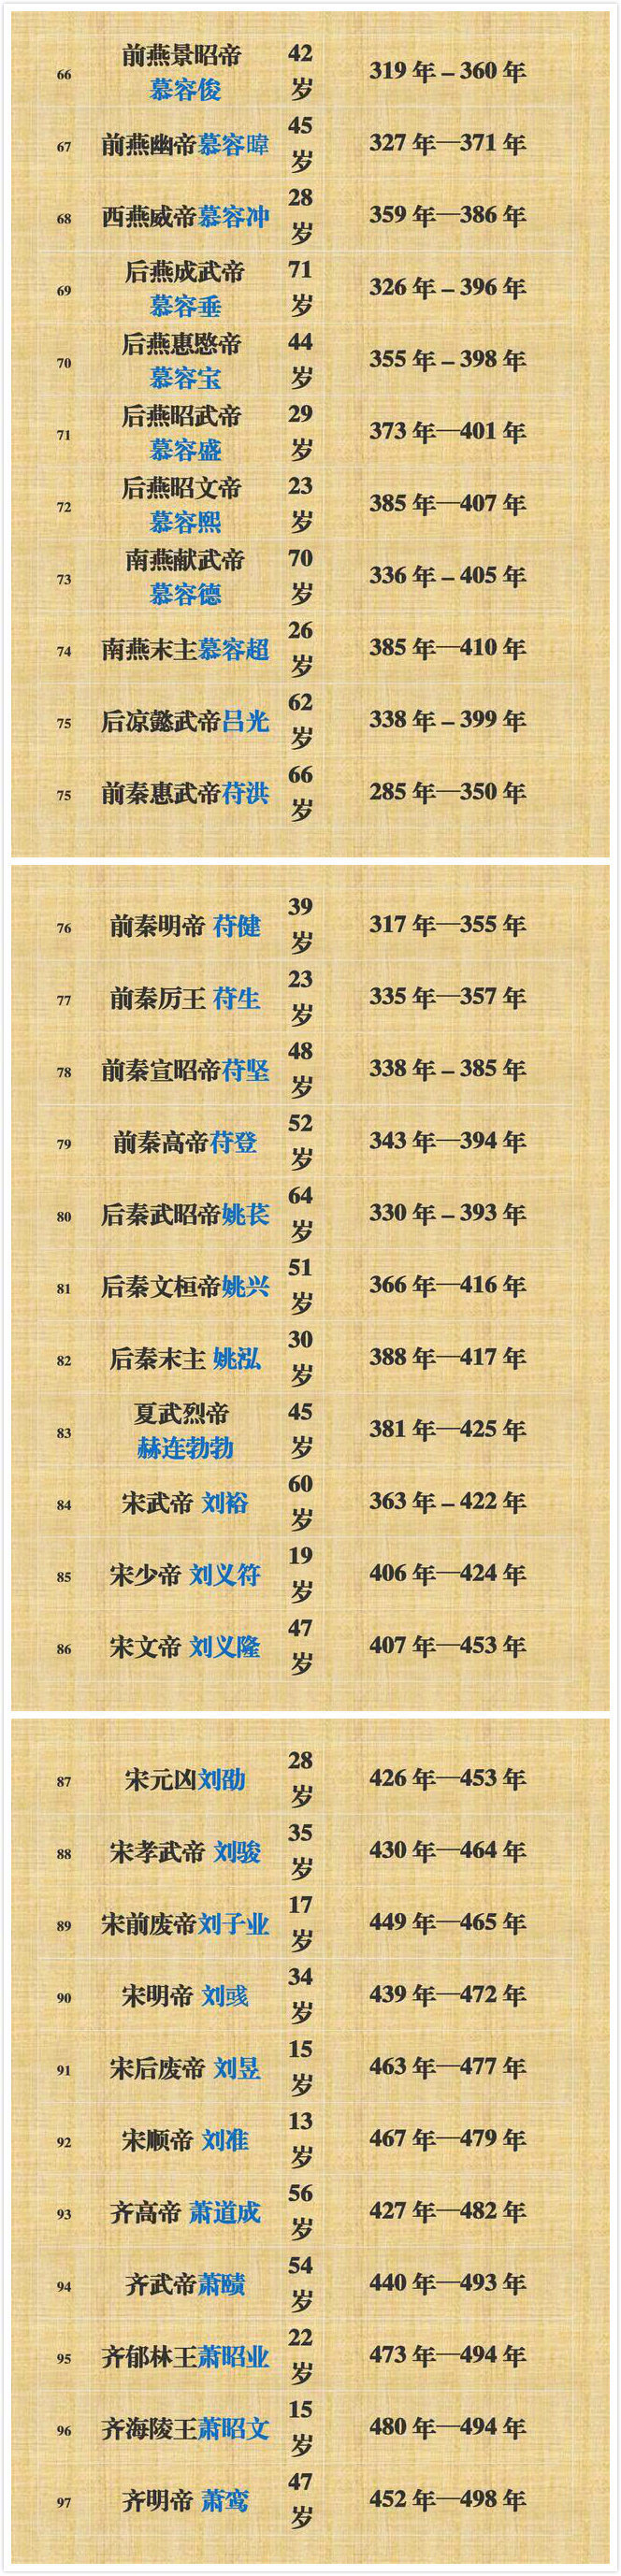 66 前燕景昭帝 42
慕容俊 岁 319 年 – 360 年
67 前燕幽帝慕容暐 45
岁 327 年—371 年
68 西燕威帝慕容冲 28
岁 359 年—386 年
69 后燕成武帝 71
慕容垂 岁 326 年 – 396 年
70 后燕惠愍帝 44
慕容宝 岁 355 年 – 398 年
71 后燕昭武帝 29
慕容盛 岁 373 年—401 年
72 后燕昭文帝 23
慕容熙 岁 385 年—407 年
73 南燕献武帝 70
慕容德 岁 336 年 – 405 年
74 南燕末主慕容超 26
岁 385 年—410 年
75 后凉懿武帝吕光 62
岁 338 年 – 399 年
75 前秦惠武帝苻洪 66
岁 285 年—350 年
76 前秦明帝 苻健 39
岁 317 年—355 年
77 前秦厉王 苻生 23
岁 335 年—357 年
78 前秦宣昭帝苻坚 48
岁 338 年 – 385 年
79 前秦高帝苻登 52
岁 343 年—394 年
80 后秦武昭帝姚苌 64
岁 330 年 – 393 年
81 后秦文桓帝姚兴 51
岁 366 年—416 年
82 后秦末主 姚泓 30
岁 388 年—417 年
83 夏武烈帝 45
赫连勃勃 岁 381 年—425 年
84 宋武帝 刘裕 60
岁 363 年 – 422 年
85 宋少帝 刘义符 19
岁 406 年—424 年
86 宋文帝 刘义隆 47
岁 407 年—453 年
87 宋元凶刘劭 28
岁 426 年—453 年
88 宋孝武帝 刘骏 35
岁 430 年—464 年
89 宋前废帝刘子业 17
岁 449 年—465 年
90 宋明帝 刘彧 34
岁 439 年—472 年
91 宋后废帝 刘昱 15
岁 463 年—477 年
92 宋顺帝 刘准 13
岁 467 年—479 年
93 齐高帝 萧道成 56
岁 427 年—482 年
94 齐武帝萧赜 54
岁 440 年—493 年
95 齐郁林王萧昭业 22
岁 473 年—494 年
96 齐海陵王萧昭文 15
岁 480 年—494 年
97 齐明帝 萧鸾 47
岁 452 年—498 年